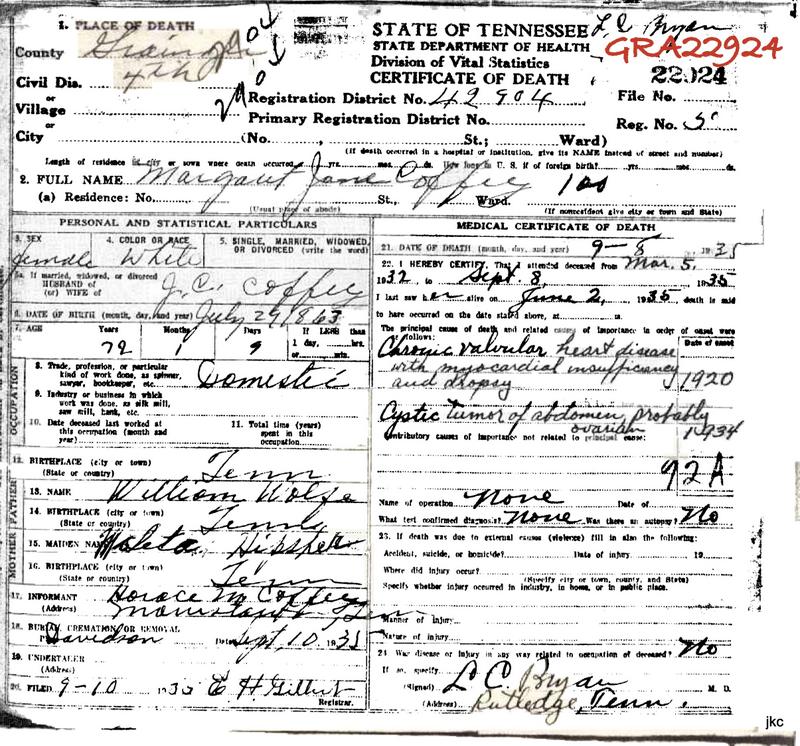 1. PLACE OF DEATH
County Grainger
Civil Dis. 4th
or
Village
or
City
STATE OF TENNESSEE
STATE DEPARTMENT OF HEALTH
Division of Vital Statistics
CERTIFICATE OF DEATH
L C Bryan
GRA22924
22924
Registration District No. 42904 File No.
Primary Registration District No. Reg. No. 5
(No. , St.; Ward)
(If death occurred in a hospital or institution, give its NAME instead of street and number)
Length of residence in city or town where death occurred yrs. mos. ds. How long in U. S. if of foreign birth? yrs. mos. ds.
2. FULL NAME Margaret Jane Coffey 100
(a) Residence: No. St., Ward.
(Usual place of abode) (If nonresident give city or town and State)
PERSONAL AND STATISTICAL PARTICULARS
3. SEX female
4. COLOR OR RACE White
5. SINGLE, MARRIED, WIDOWED, OR DIVORCED (write the word)
5a. If married, widowed, or divorced
HUSBAND of
(or) WIFE of J. C. Coffey
6. DATE OF BIRTH (month, day, and year) July 29 1863
7. AGE Years Months Days If LESS than
72 1 9 1 day, hrs.
or min.
8. Trade, profession, or particular
kind of work done, as spinner,
sawyer, bookkeeper, etc. Domestic
9. Industry or business in which
work was done, as silk mill,
saw mill, bank, etc.
10. Date deceased last worked at
this occupation (month and
year)
11. Total time (years)
spent in this
occupation
OCCUPATION
12. BIRTHPLACE (city or town)
(State or country) Tenn
FATHER
13. NAME William Wolfe
14. BIRTHPLACE (city or town)
(State or country) Tenn
MOTHER
15. MAIDEN NAME
16. BIRTHPLACE (city or town)
(State or country) Tenn
17. INFORMANT Horace M Coffey
(Address) Tenn
18. BURIAL, CREMATION OR REMOVAL
Davidson Date Sept 10 1935
19. UNDERTAKER
(Address)
20. FILED 9-10 1935 E H Gilbert
Registrar.
MEDICAL CERTIFICATE OF DEATH
21. DATE OF DEATH (month, day, and year) 9-8 1935
22. I HEREBY CERTIFY, That I attended deceased from Mar. 5,
1932 to Sept 8, 1935
I last saw her alive on June 2, 1935 death is said
to have occurred on the date stated above, at m.
The principal cause of death and related causes of importance in order of onset were
as follows: Date of onset
Chronic valvular heart disease
with myocardial insufficiency
and dropsy 1920
Cystic tumor of abdomen, probably
ovarian 1934
Contributory causes of importance not related to principal cause:
92A
Name of operation None Date of
What test confirmed diagnosis? None Was there an autopsy? No
23. If death was due to external causes (violence) fill in also the following:
Accident, suicide, or homicide? Date of injury 19
Where did injury occur?
(Specify city or town, county, and State)
Specify whether injury occurred in industry, in home, or in public place.
Manner of injury
Nature of injury
24. Was disease or injury in any way related to occupation of deceased? No
If so, specify
(Signed) L C Bryan M. D.
(Address) Rutledge, Tenn.
jkc